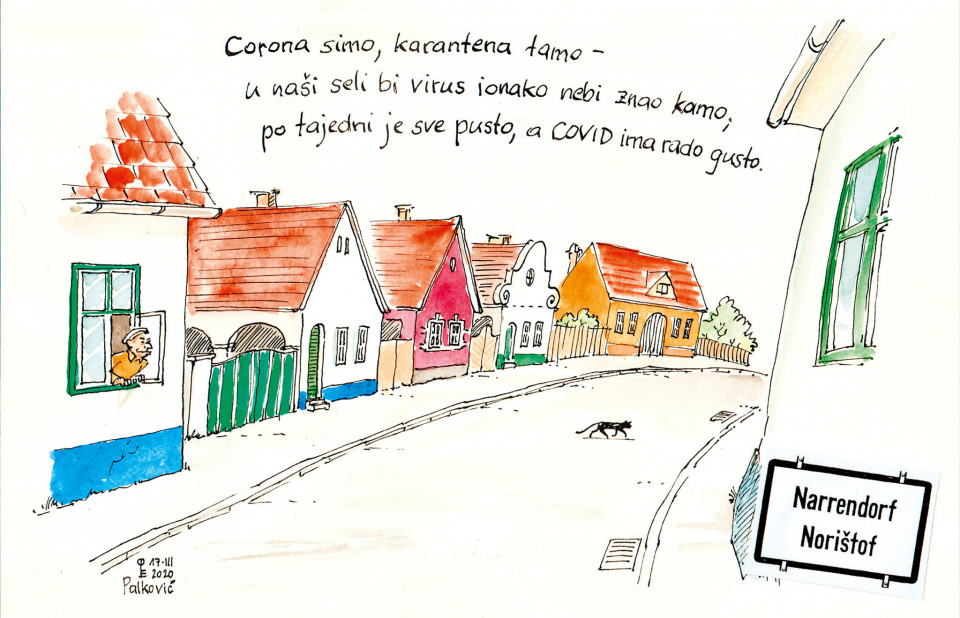 Corona simo, karantena tamo –
u naši seli bi virus ionako nebi znao kamo;
po tajedni je sve pusto, a COVID ima rado gusto.
Narrendorf
Norištof
17·III
2020
Palković